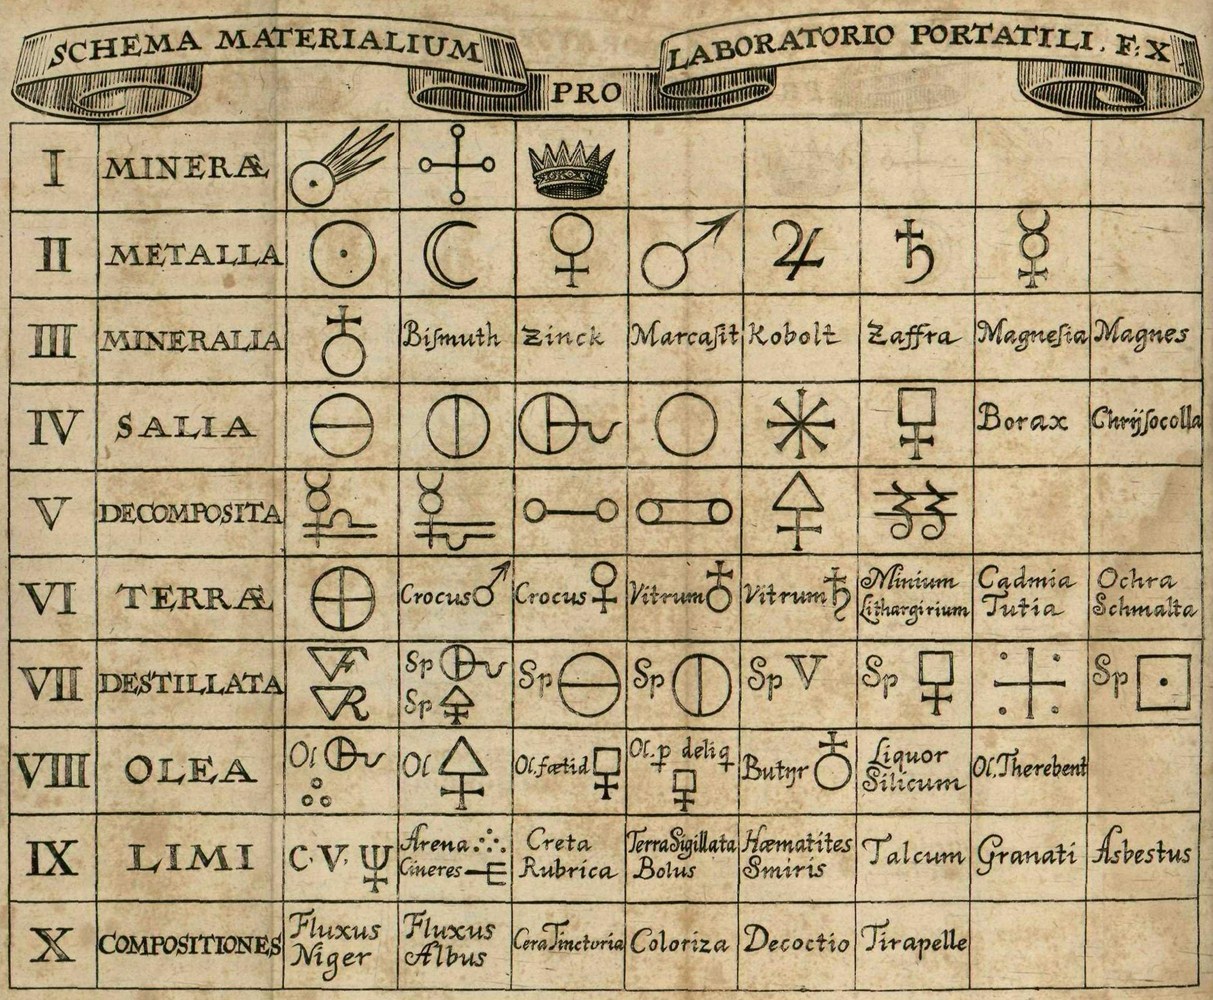 SCHEMA MATERIALIUM
PRO
LABORATORIO PORTATILI. F: X
I MINERÆ
II METALLA
III MINERALIA Biſmuth Zinck Marcaſit Kobolt Zaffra Magneſia Magnes
IV SALIA Borax Chrÿſocolla
V DECOMPOSITA
VI TERRÆ Crocus Crocus Vitrum Vitrum Minium Lithargirium Cadmia Tutia Ochra Schmalta
VII DESTILLATA Sp Sp Sp Sp Sp V Sp Sp
VIII OLEA Ol Ol Ol.fœtid Ol. p deliq Butyr Liquor Silicum Ol.Therebent
IX LIMI C.V. Arena Cineres Creta Rubrica Terra Sigillata Bolus Hæmatites Smiris Talcum Granati Asbestus
X COMPOSITIONES Fluxus Niger Fluxus Albus Cera Tinctoria Coloriza Decoctio Tirapelle